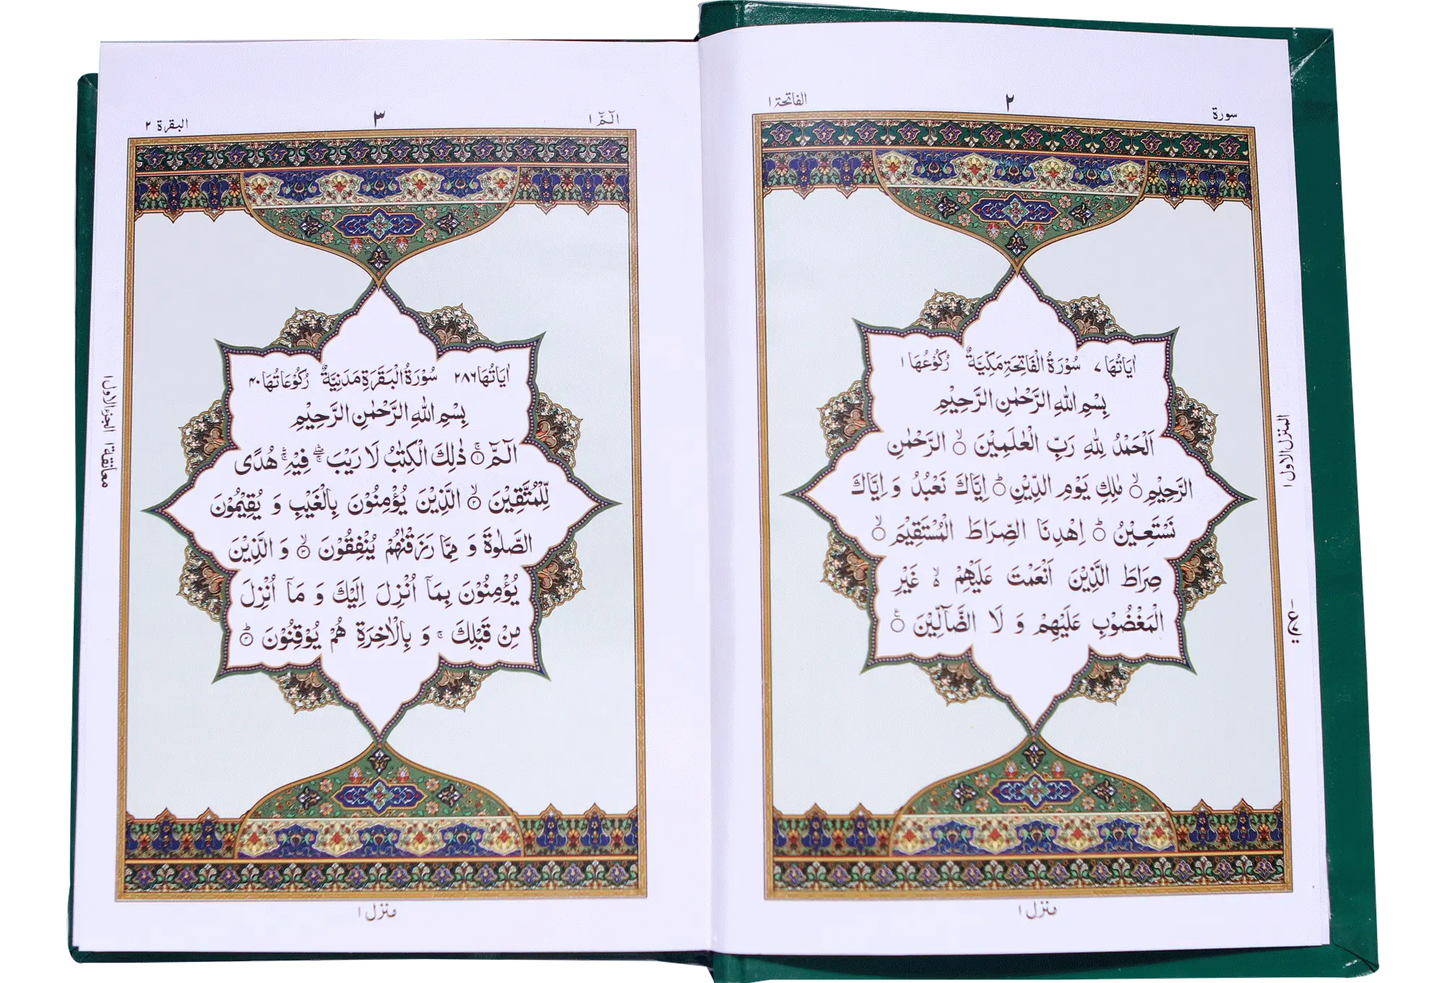 سورة
٢
الفاتحة ١
اٰيَاتُهَا ٧ سُوْرَةُ الْفَاتِحَةِ مَكِّيَّةٌ رُكُوْعُهَا ١
بِسْمِ اللّٰهِ الرَّحْمٰنِ الرَّحِيْمِ
اَلْحَمْدُ لِلّٰهِ رَبِّ الْعٰلَمِيْنَ ۙ الرَّحْمٰنِ
الرَّحِيْمِ ۙ مٰلِكِ يَوْمِ الدِّيْنِ ؕ اِيَّاكَ نَعْبُدُ وَ اِيَّاكَ
نَسْتَعِيْنُ ؕ اِهْدِنَا الصِّرَاطَ الْمُسْتَقِيْمَ ۙ
صِرَاطَ الَّذِيْنَ اَنْعَمْتَ عَلَيْهِمْ ۙ غَيْرِ
الْمَغْضُوْبِ عَلَيْهِمْ وَ لَا الضَّآلِّيْنَ
المنزل الاول ١
منزل ١
الٓمّٓ ١
٣
البقرة ٢
اٰيَاتُهَا ٢٨٦ سُوْرَةُ الْبَقَرَةِ مَدَنِيَّةٌ رُكُوْعَاتُهَا ٤٠
بِسْمِ اللّٰهِ الرَّحْمٰنِ الرَّحِيْمِ
الٓمّٓ ۚ ذٰلِكَ الْكِتٰبُ لَا رَيْبَ ۛ فِيْهِ ۛ هُدًى
لِّلْمُتَّقِيْنَ ۙ الَّذِيْنَ يُؤْمِنُوْنَ بِالْغَيْبِ وَ يُقِيْمُوْنَ
الصَّلٰوةَ وَ مِمَّا رَزَقْنٰهُمْ يُنْفِقُوْنَ ۙ وَ الَّذِيْنَ
يُؤْمِنُوْنَ بِمَآ اُنْزِلَ اِلَيْكَ وَ مَآ اُنْزِلَ
مِنْ قَبْلِكَ ۚ وَ بِالْاٰخِرَةِ هُمْ يُوْقِنُوْنَ ؕ
معانقة ١ الجزء الاول ١
منزل ١